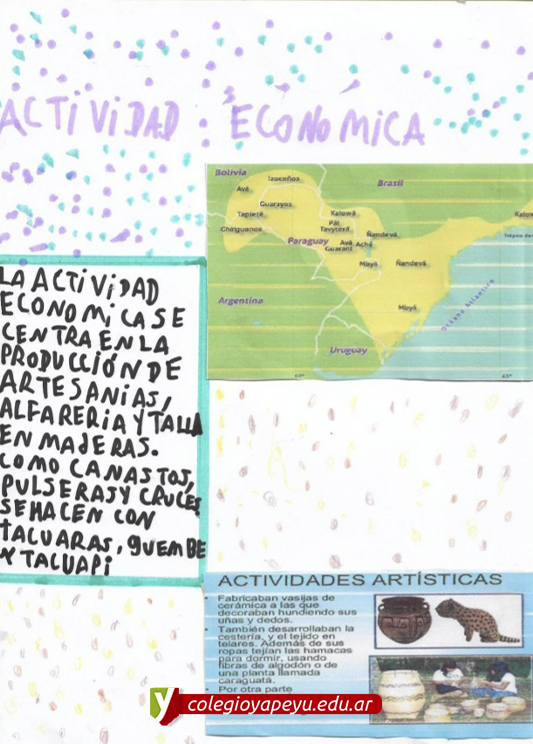 ACTIVIDAD ECONÓMICA
Bolivia
Isoceños
Brasil
Avá
Guarayos
Tapieté
Kaiowá
Kaiow
Chiriguanos
Paí
Tavyterá
Ñandevá
Paraguay
Avá
Guaraní
Aché
Mbyá
Ñandevá
Argentina
Mbyá
Océano Atlántico
Uruguay
LA ACTIVIDAD
ECONOMICA SE
CENTRA EN LA
PRODUCCIÓN DE
ARTESANIAS,
ALFARERIA Y TALLA
EN MADERAS.
COMO CANASTOS,
PULSERAS Y CRUCES
SE HACEN CON
TACUARAS, GUEMBE
Y TACUAPI
ACTIVIDADES ARTÍSTICAS
Fabricaban vasijas de
cerámica a las que
decoraban hundiendo sus
uñas y dedos.
• También desarrollaban la
cestería, y el tejido en
telares. Además de sus
ropas tejían las hamacas
para dormir, usando
fibras de algodón o de
una planta llamada
caraguatá.
• Por otra parte
y colegioyapeyu.edu.ar